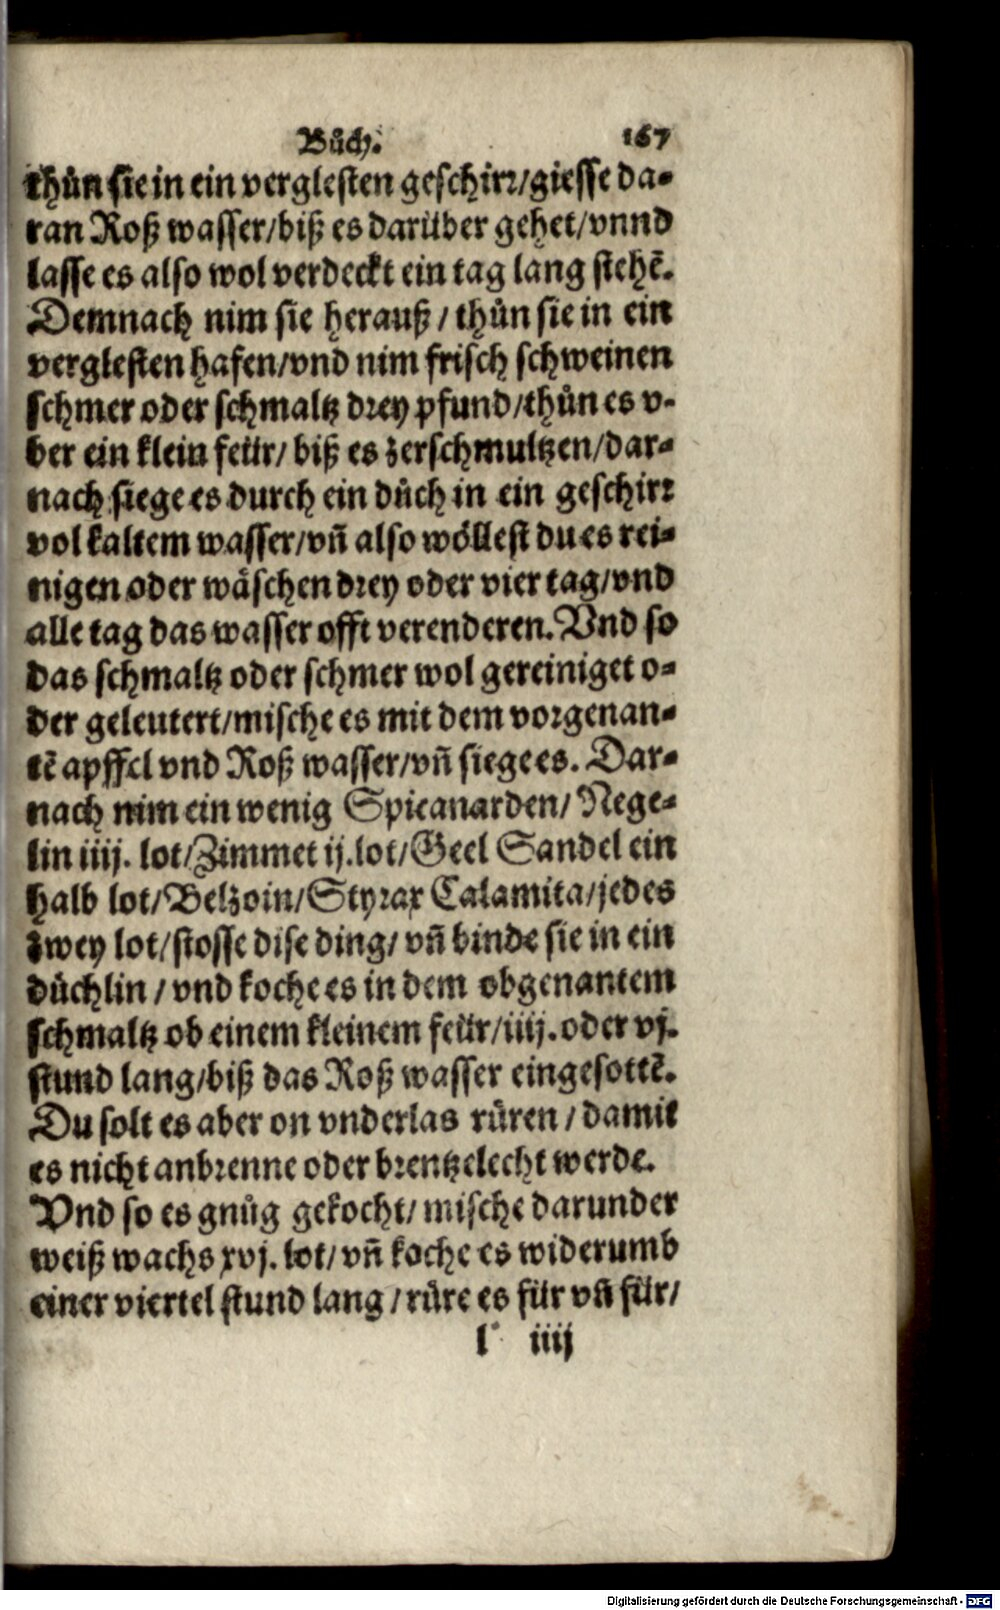 Bůch. 167
thůn sie in ein verglesten geschirr/giesse da-
ran Roß wasser/biß es darüber gehet/vnnd
lasse es also wol verdeckt ein tag lang stehẽ.
Demnach nim sie herauß / thůn sie in ein
verglesten hafen/vnd nim frisch schweinen
schmer oder schmaltz drey pfund/thůn es v-
ber ein klein feür/ biß es zerschmultzen/dar-
nach siege es durch ein důch in ein geschirr
vol kaltem wasser/vñ also wöllest du es rei-
nigen oder wäschen drey oder vier tag/vnd
alle tag das wasser offt verenderen. Vnd so
das schmaltz oder schmer wol gereiniget o-
der geleutert/mische es mit dem vorgenan-
tẽ apffel vnd Roß wasser/vñ siege es. Dar-
nach nim ein wenig Spicanarden/ Nege-
lin iiij. lot/Zimmet ij.lot/Geel Sandel ein
halb lot/Belzoin/Styrax Calamita/jedes
zwey lot/stosse dise ding/ vñ binde sie in ein
düchlin / vnd koche es in dem obgenantem
schmaltz ob einem kleinem feür/iiij. oder vj.
stund lang/biß das Roß wasser eingesottẽ.
Du solt es aber on vnderlas růren / damit
es nicht anbrenne oder brentzelecht werde.
Vnd so es gnůg gekocht/ mische darunder
weiß wachs xvj. lot/ vñ koche es widerumb
einer viertel stund lang / růre es für vñ für/
l iiij
Digitalisierung gefördert durch die Deutsche Forschungsgemeinschaft - DFG